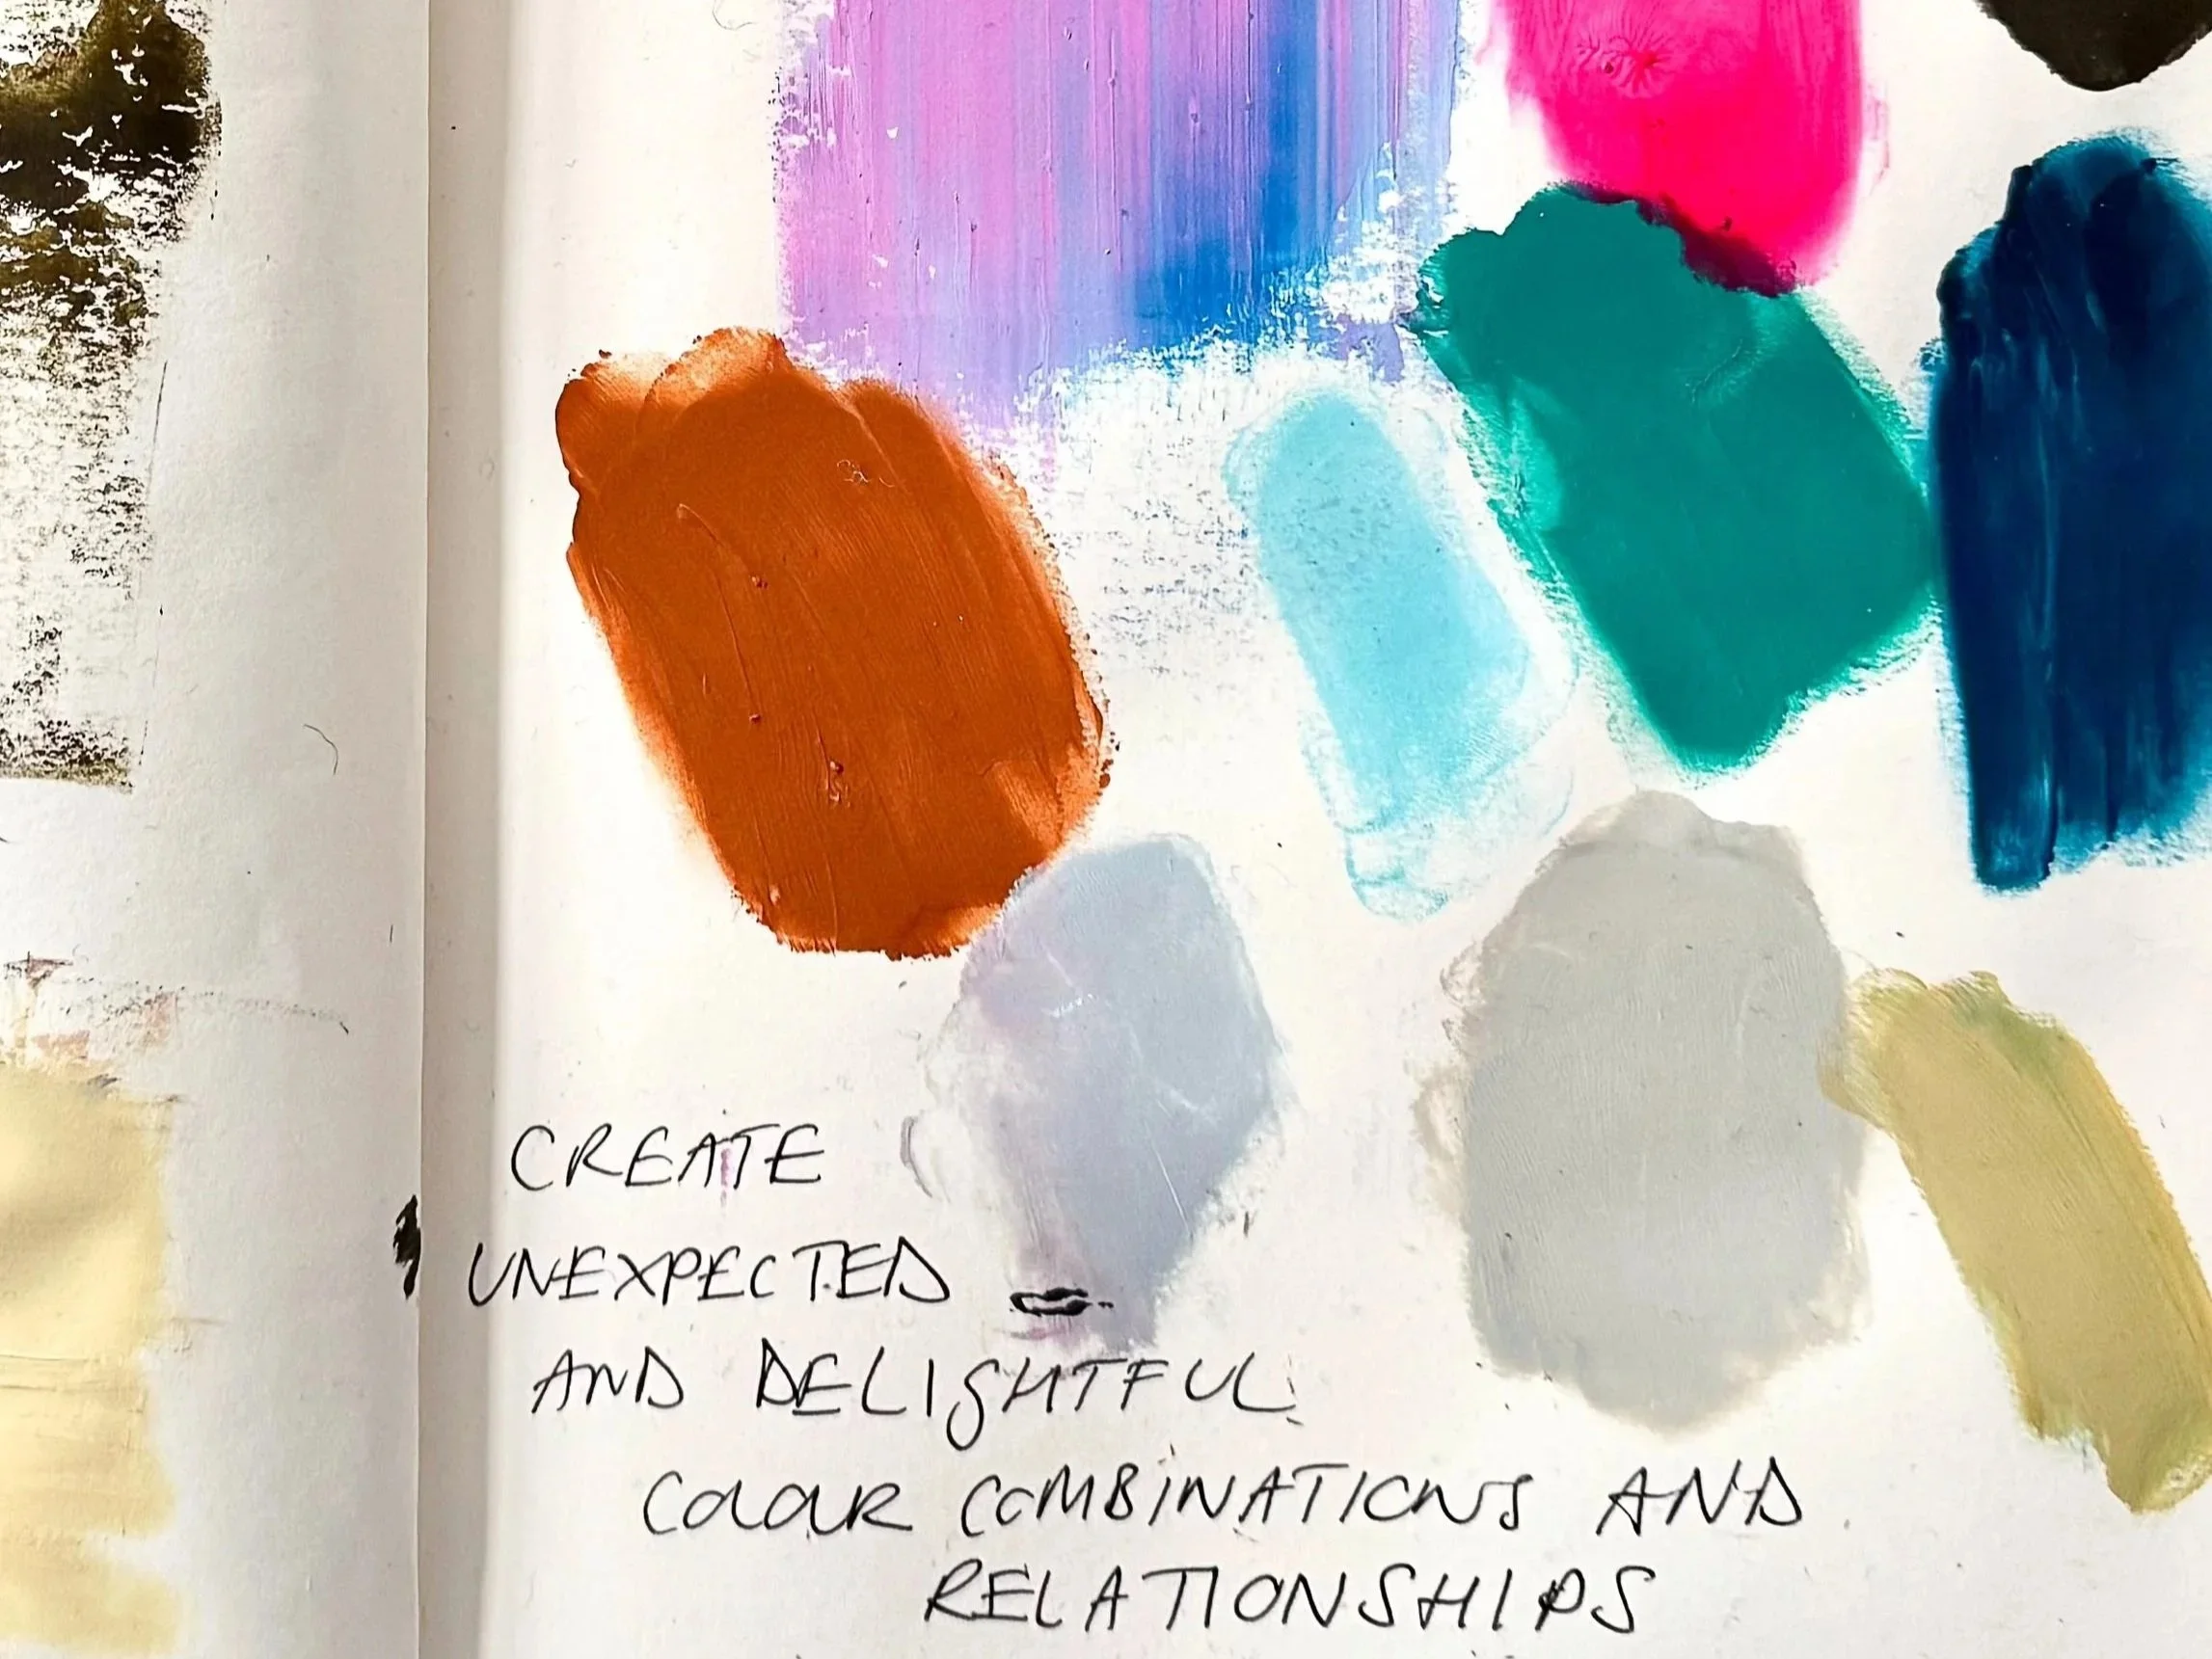 CREATE
UNEXPECTED
AND DELIGHTFUL
COLOUR COMBINATIONS AND
RELATIONSHIPS